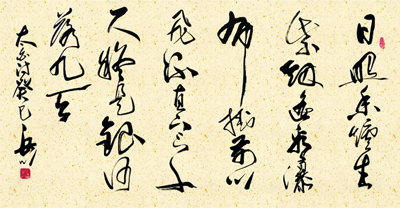 日照香爐生
紫烟遥看瀑
布掛前川
飛流直下三千
尺疑是銀河
落九天
太白诗癸巳